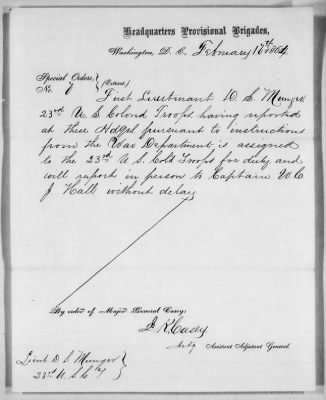 Headquarters Provisional Brigades,
Washington, D. C., February 16th 1864.
Special Orders,
No. 7 (Extract.)
First Lieutenant D. S. Munger
23rd U S Colored Troops, having reported
at these Hdqrs pursuant to instructions
from the War Department, is assigned
to the 23rd U S. Cold Troops for duty and
will report in person to Captain W. C.
J. Hall without delay
By order of Major General Casey:
Casey
Actg Assistant Adjutant General.
Lieut D. S. Munger
23rd U. S. C